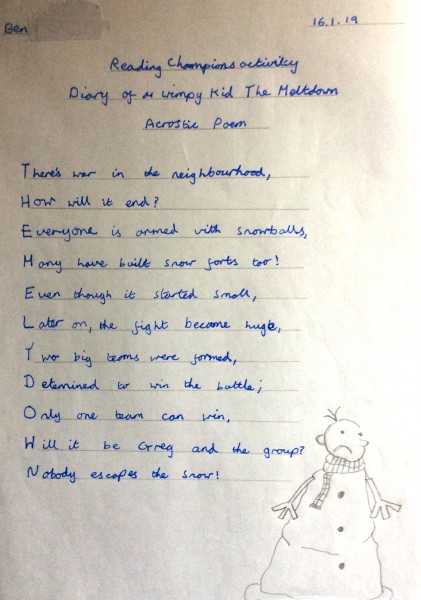 Ben
16.1.19
Reading Champions activity
Diary of a wimpy Kid The Meltdown
Acrostic Poem
There's war in the neighbourhood,
How will it end?
Everyone is armed with snowballs,
Many have built snow forts too!
Even though it started small,
Later on, the fight became huge,
Two big teams were formed,
Detemined to win the battle;
Only one team can win,
Will it be Greg and the group?
Nobody escapes the snow!